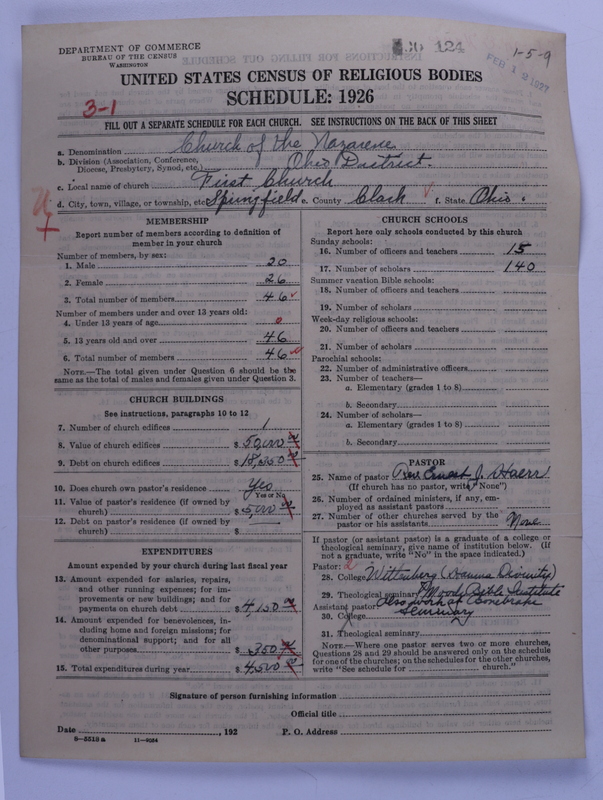 DEPARTMENT OF COMMERCE
BUREAU OF THE CENSUS
WASHINGTON
124
1-5-9
FEB 12 1927
UNITED STATES CENSUS OF RELIGIOUS BODIES
SCHEDULE: 1926
3-1
FILL OUT A SEPARATE SCHEDULE FOR EACH CHURCH. SEE INSTRUCTIONS ON THE BACK OF THIS SHEET
a. Denomination Church of the Nazarene
b. Division (Association, Conference, Diocese, Presbytery, Synod, etc.) Ohio District.
c. Local name of church First Church
d. City, town, village, or township, etc. Springfield e. County Clark f. State Ohio.
MEMBERSHIP
Report number of members according to definition of
member in your church
Number of members, by sex:
1. Male 20
2. Female 26
3. Total number of members 46
Number of members under and over 13 years old:
4. Under 13 years of age 0
5. 13 years old and over 46
6. Total number of members 46
NOTE.—The total given under Question 6 should be the
same as the total of males and females given under Question 3.
CHURCH BUILDINGS
See instructions, paragraphs 10 to 12
7. Number of church edifices 1
8. Value of church edifices $ 50,000
9. Debt on church edifices $ 18,350
10. Does church own pastor's residence Yes
Yes or No
11. Value of pastor's residence (if owned by
church) $ 5,000
12. Debt on pastor's residence (if owned by
church) $
EXPENDITURES
Amount expended by your church during last fiscal year
13. Amount expended for salaries, repairs,
and other running expenses; for im-
provements or new buildings; and for
payments on church debt $ 4,150
14. Amount expended for benevolences, in-
cluding home and foreign missions; for
denominational support; and for all
other purposes $ 350
15. Total expenditures during year $ 4,500
CHURCH SCHOOLS
Report here only schools conducted by this church
Sunday schools:
16. Number of officers and teachers 15
17. Number of scholars 140
Summer vacation Bible schools:
18. Number of officers and teachers
19. Number of scholars
Week-day religious schools:
20. Number of officers and teachers
21. Number of scholars
Parochial schools:
22. Number of administrative officers
23. Number of teachers—
a. Elementary (grades 1 to 8)
b. Secondary
24. Number of scholars—
a. Elementary (grades 1 to 8)
b. Secondary
PASTOR
25. Name of pastor Rev Ernest J.
(If church has no pastor, write "None")
26. Number of ordained ministers, if any, em-
ployed as assistant pastors
27. Number of other churches served by the
pastor or his assistants None
If pastor (or assistant pastor) is a graduate of a college or
theological seminary, give name of institution below. (If
not a graduate, write "No" in the space indicated.)
Pastor:
28. College Wittenberg (Hamma Divinity)
29. Theological seminary Moody Bible Institute
Also work at Bonebrake
Assistant pastor:
30. College Seminary
31. Theological seminary
NOTE.—Where one pastor serves two or more churches,
Questions 28 and 29 should be answered only on the schedule
for one of the churches; on the schedules for the other churches,
write "See schedule for church."
Signature of person furnishing information
Official title
Date , 192 P. O. Address
8-5513a 11-9034